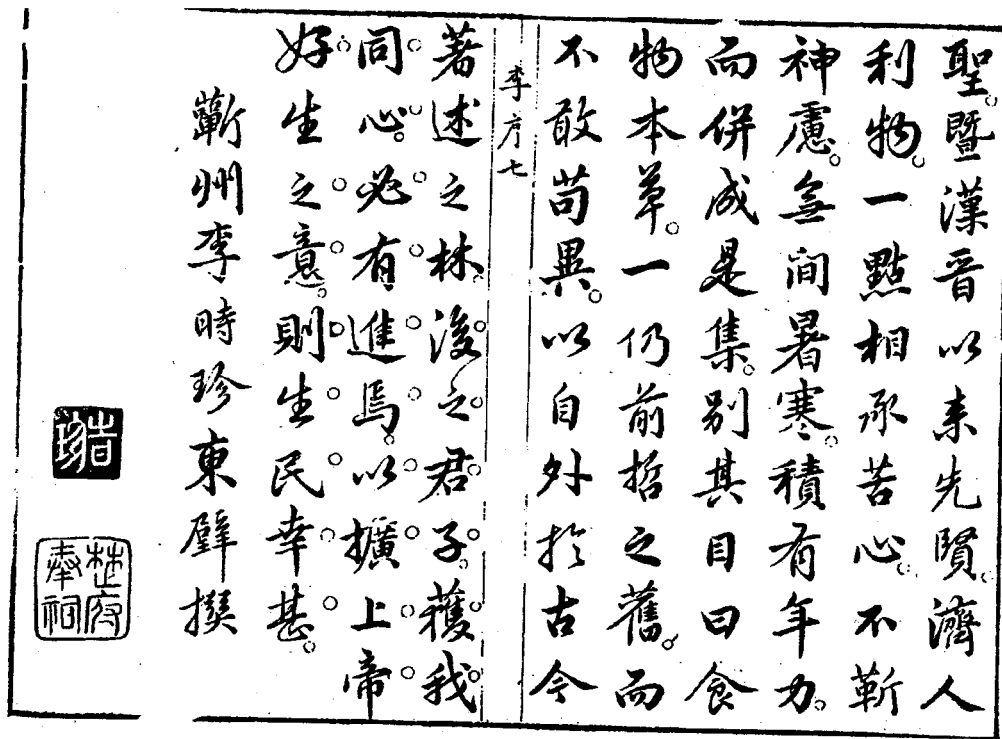 聖暨漢晉以来先賢濟人
利物一點相承苦心不蘄
神慮無間暑寒積有年力
而併成是集別其目曰食
物本草一仍前哲之舊而
不敢苟異以自外扵古今
李序七
著述之林後之君子獲我
同心必有進焉以擴上帝
好生之意則生民幸甚
蘄州李時珍東璧撰
時珍
楚府
奉祠